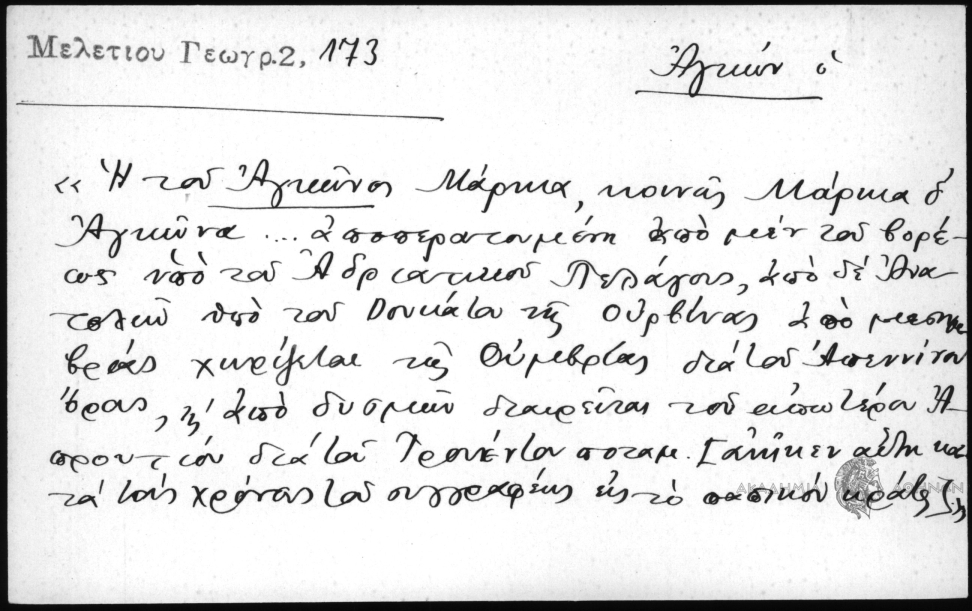 Μελετιου Γεωγρ.2, 173
Ἀγκών ὁ
« Ἡ τοῦ Ἀγκῶνος Μάρκα, κοινῶς Μάρκα δ'
Ἀγκῶνα .... ἀποπερατουμένη ἀπὸ μὲν τοῦ βορέ-
ως ὑπὸ τοῦ Ἀδριατικοῦ Πελάγους, ἀπὸ δὲ Ἀνα
τολῶν ὑπὸ τοῦ Δουκάτου τῆς Οὐρβίνας ἀπὸ μεσημ
βρίας χωρίζεται τῆς Οὐμβρίας διὰ τοῦ Ἀπεννίνου
ὄρους, κ' ἀπὸ δυσμῶν διαιρεῖται τοῦ ἀπωτέρου Ἀ-
προυτίου διὰ τοῦ Τρουέντου ποταμ. [ἀνῆκεν αὕτη κα
τὰ τοὺς χρόνους τοῦ συγγραφέως εἰς τὸ παπικὸν κράτος
ΑΚΑΔΗΜΙΑ ΑΘΗΝΩΝ